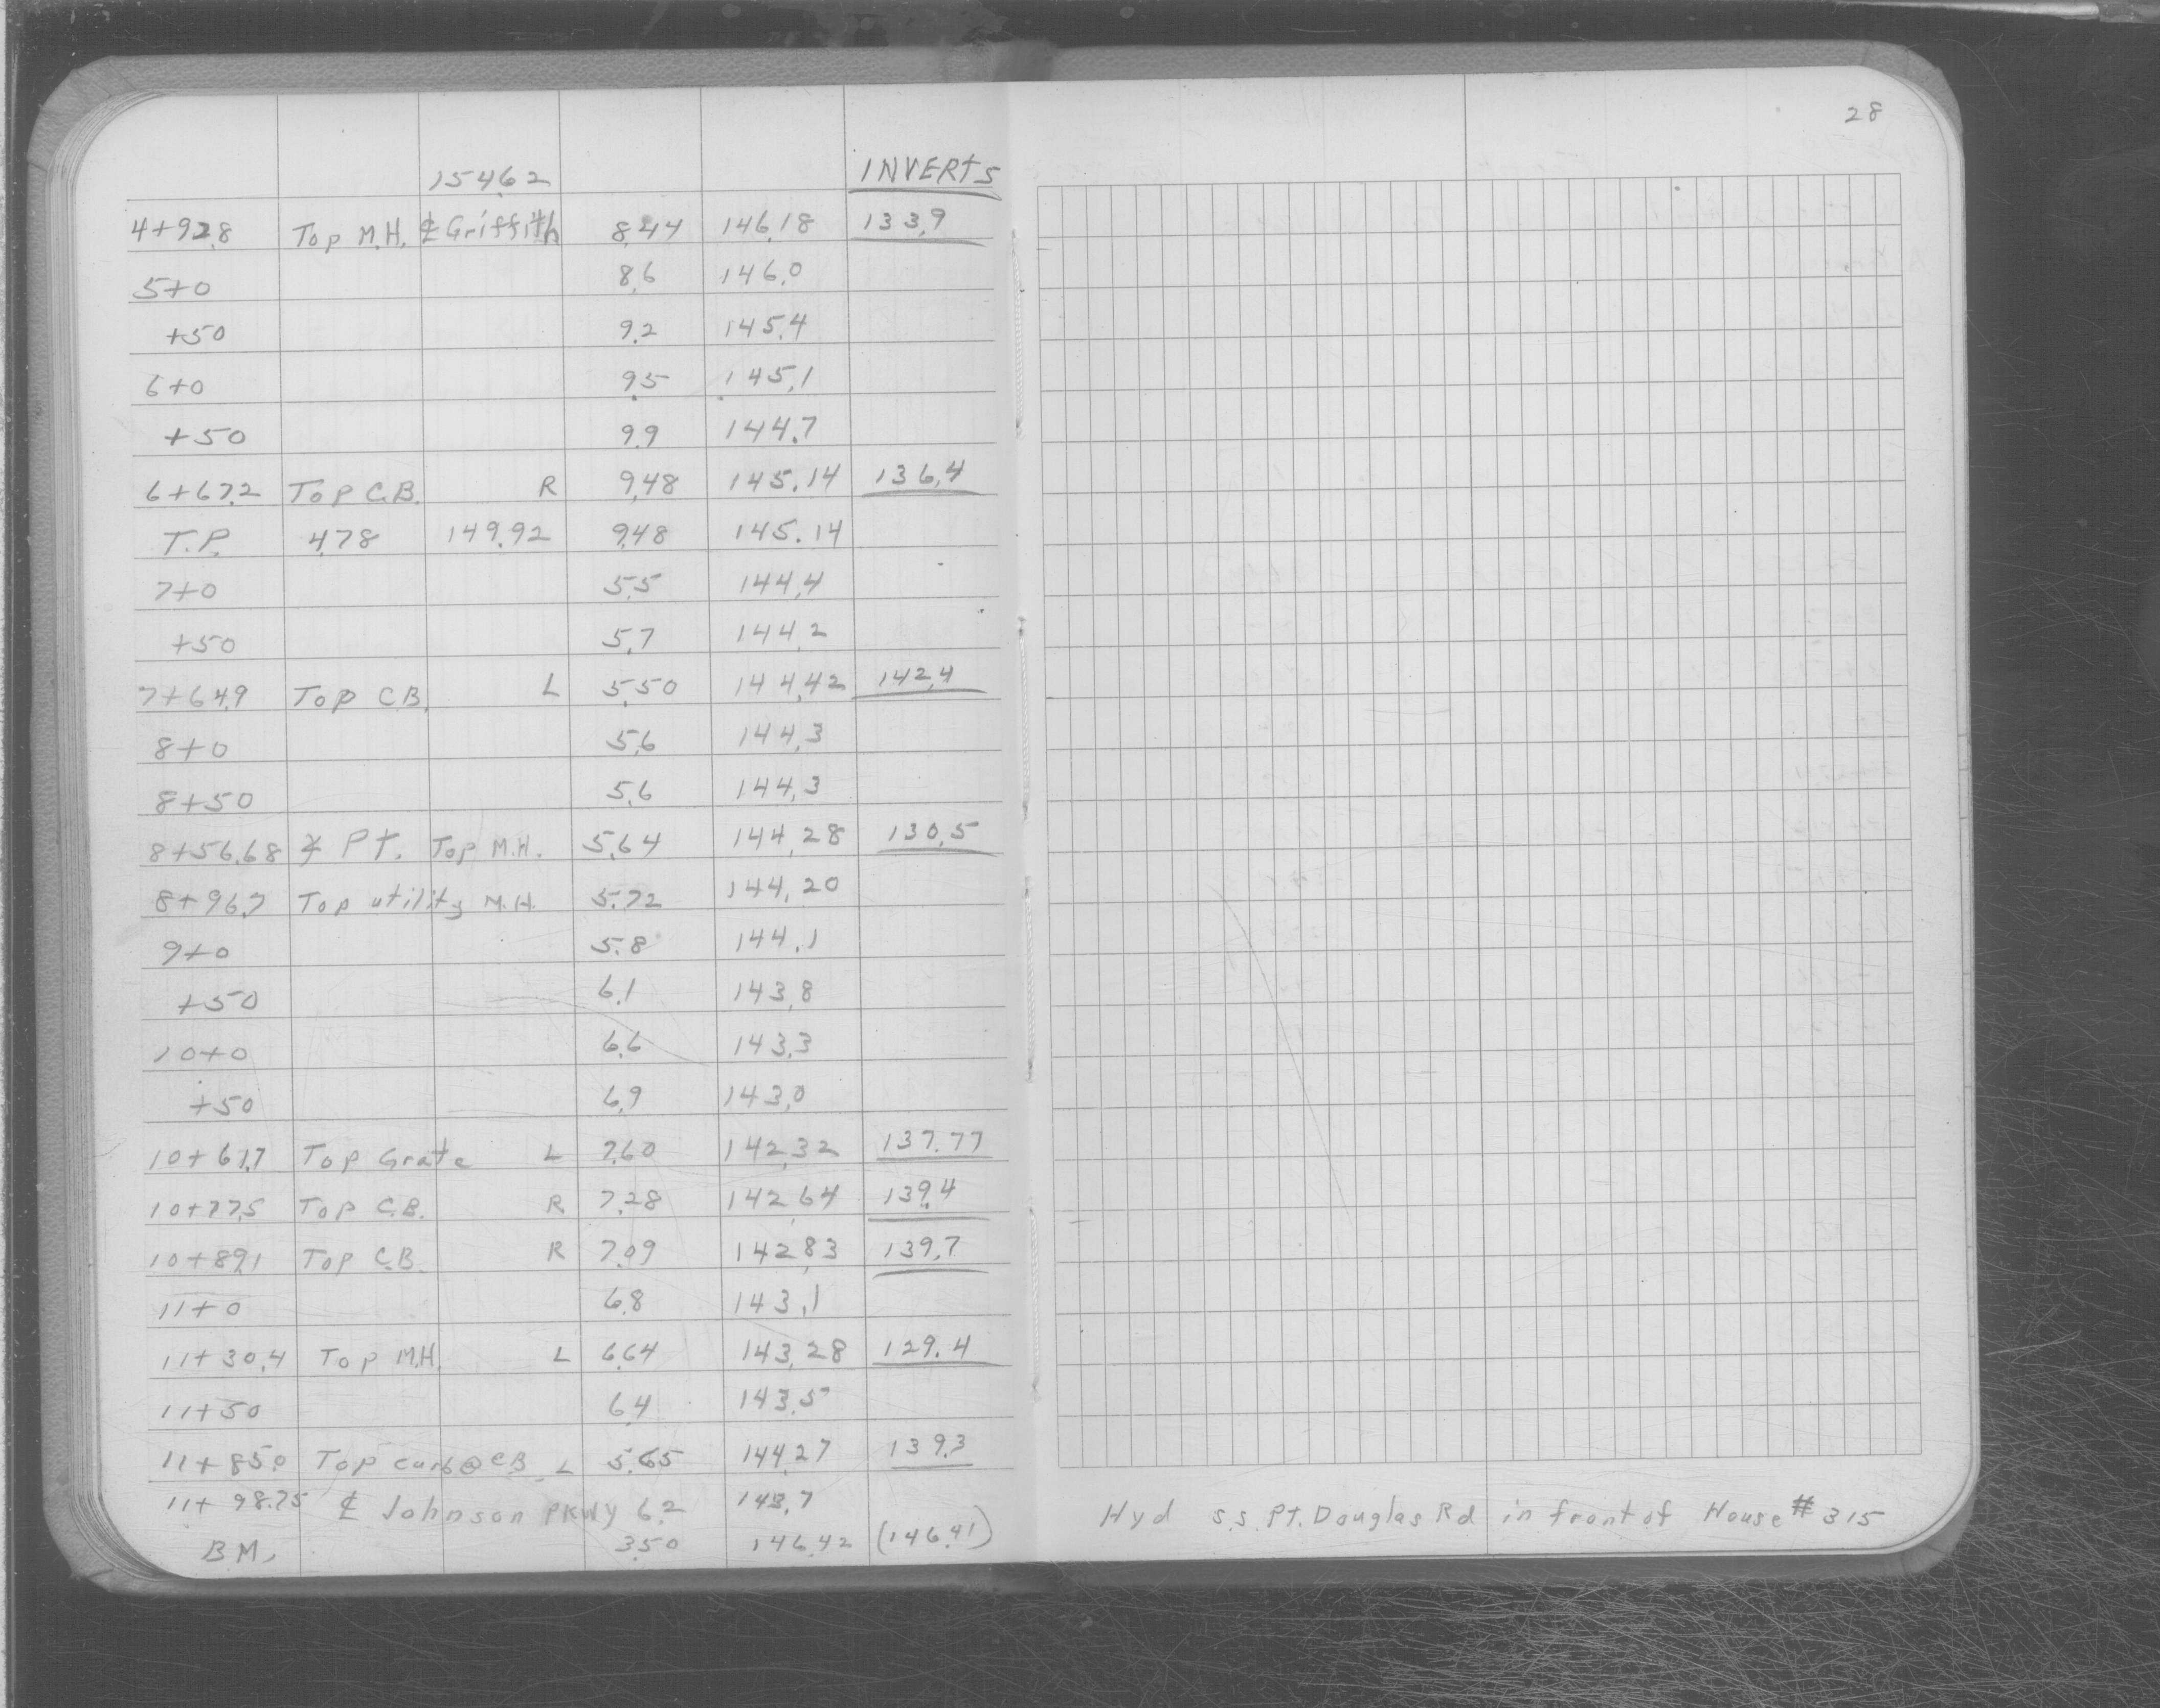 28
154.62 INVERTS
4+92.8 Top M.H. ℄ Griffith 8.44 146.18 133.9
5+0 8.6 146.0
+50 9.2 145.4
6+0 9.5 145.1
+50 9.9 144.7
6+67.2 Top C.B. R 9.48 145.14 136.4
T.P. 4.78 149.92 9.48 145.14
7+0 5.5 144.4
+50 5.7 144.2
7+64.9 Top C.B. L 5.50 144.42 142.4
8+0 5.6 144.3
8+50 5.6 144.3
8+56.68 ∡ Pt. Top M.H. 5.64 144.28 130.5
8+96.7 Top utility M.H. 5.72 144.20
9+0 5.8 144.1
+50 6.1 143.8
10+0 6.6 143.3
+50 6.9 143.0
10+61.7 Top Grate L 7.60 142.32 137.77
10+77.5 Top C.B. R 7.28 142.64 139.4
10+89.1 Top C.B. R 7.09 142.83 139.7
11+0 6.8 143.1
11+30.4 Top M.H. L 6.64 143.28 129.4
11+50 6.4 143.5
11+85.0 Top curb@CB L 5.65 144.27 139.3
11+98.75 ℄ Johnson PKWY 6.2 143.7
B.M. 3.50 146.42 (146.41) Hyd s.s. Pt. Douglas Rd in front of House # 315